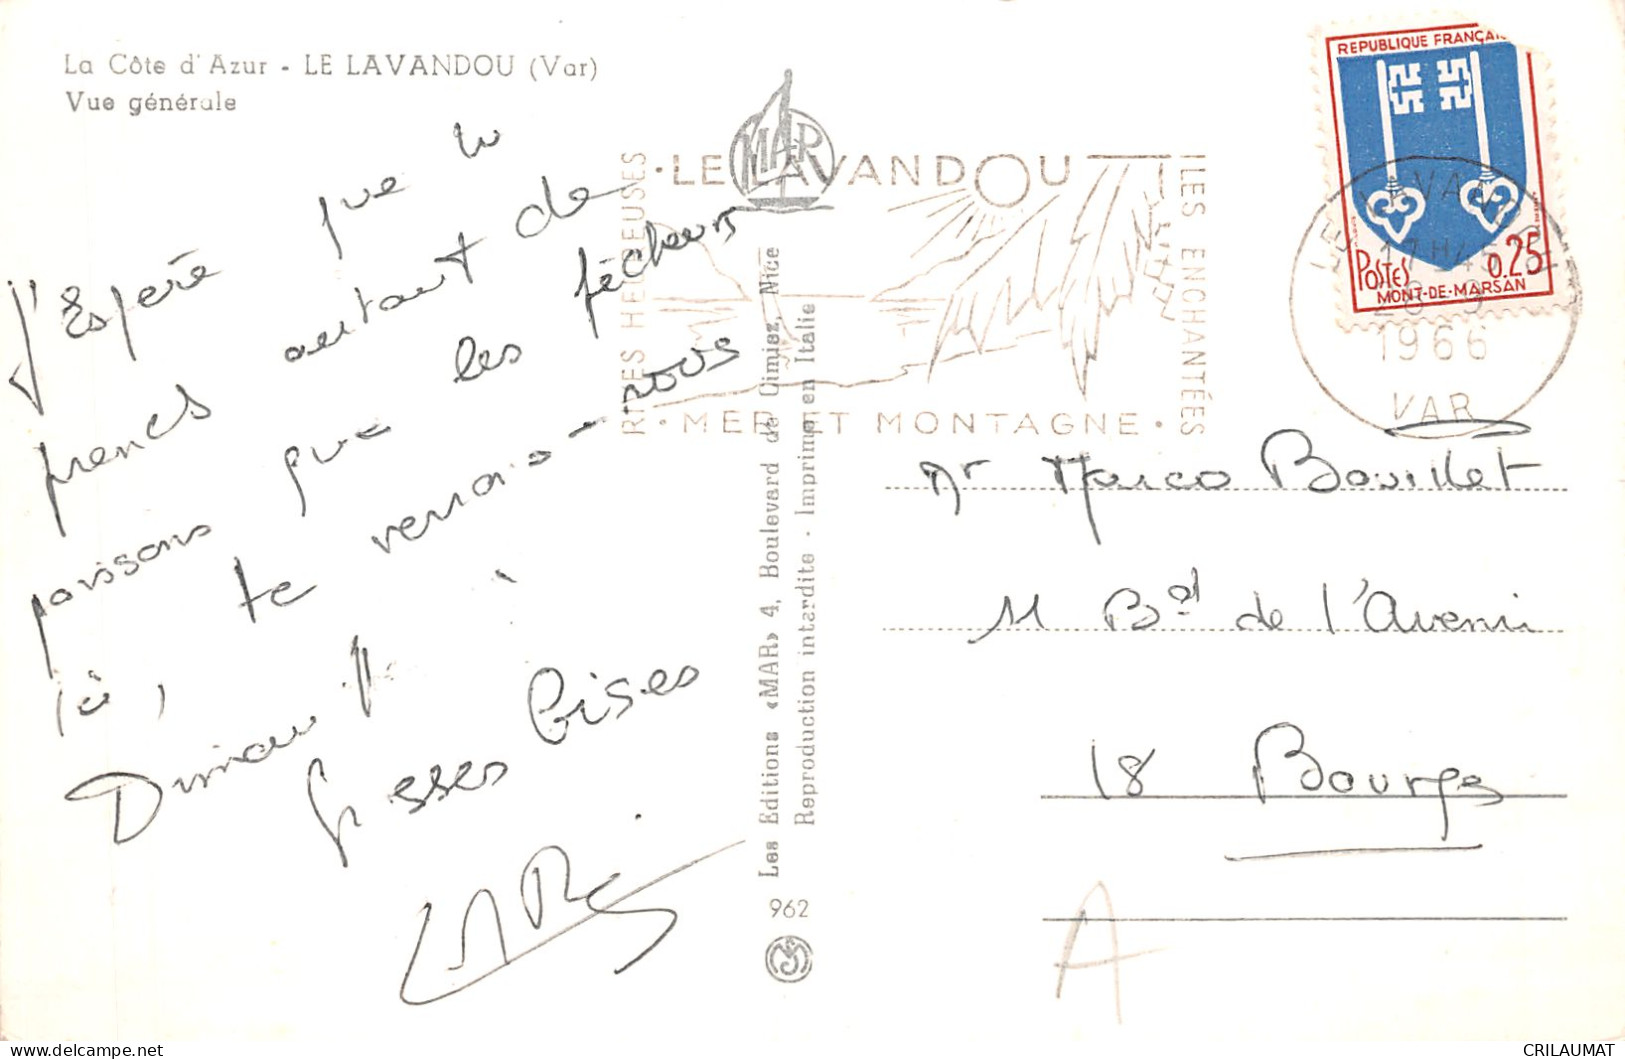 La Côte d'Azur - LE LAVANDOU (Var)
Vue générale
J'Espère que tu
prends autant de
poissons que les pêcheurs
te verrons-nous
ici,
Grosses bises
MAR
Les Editions «MAR» 4, Boulevard de Cimiez, Nice
Reproduction interdite - Imprimé en Italie
962
RIVES HEUREUSES
• LE LAVANDOU
ILES ENCHANTÉES
• MER ET MONTAGNE •
REPUBLIQUE FRANÇAI
POSTES 0.25
MONT-DE-MARSAN
LE LAVANDOU
17H45
1966
VAR
Mr Marco Bouillet
11 Bd de l'Avenir
18 Bourges
A
CRILAUMAT